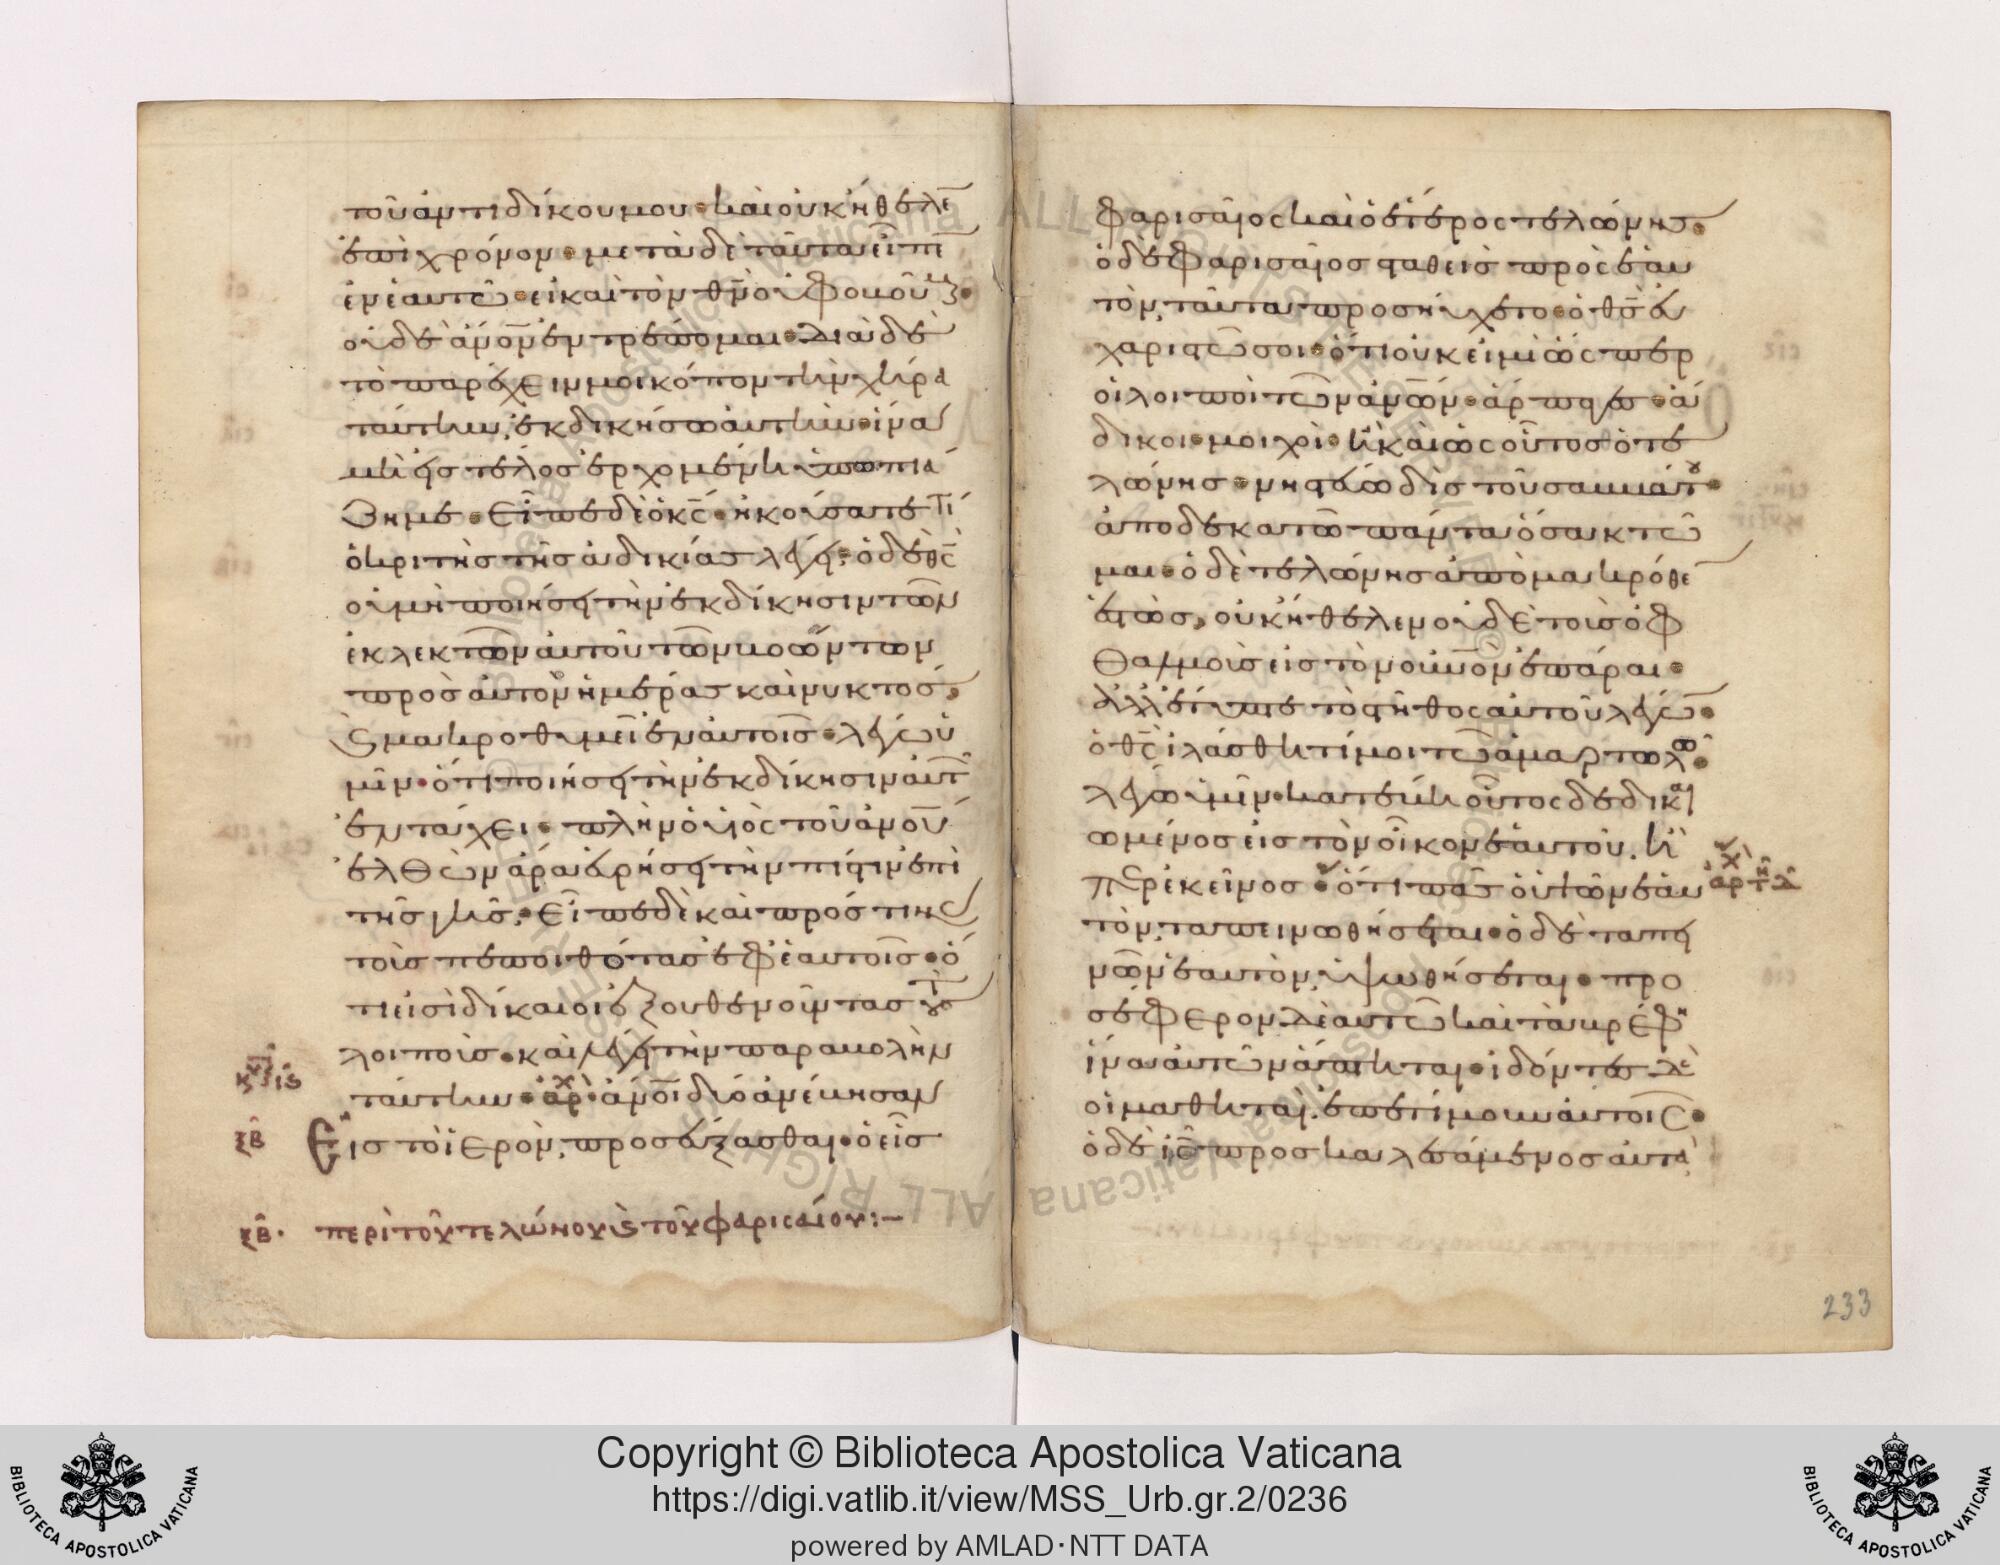 τοῦ ἀντιδίκου μου· καὶ οὐκ ἤθελε̅
ἐπὶ χρόνον· μετὰ δὲ ταῦτα εἶπε̅
ἐν ἑαυτῶ· εἰ καὶ τὸν θν̅ οὐ φοβοῦμαι·
οὐδὲ ἀν̅ον ἐντρέπομαι· διὰ δὲ
τὸ παρέχειν μοι κόπον τὴν χήρα
ταύτην, ἐκδικήσω αὐτήν· ἵνα
μὴ εἰς τέλος ἐρχομένη ὑπωπιά
ζη με· Εἶπε δὲ ὁ κς̅· ἠκούσατε τί
ὁ κριτὴς τῆς ἀδικίας λέγει· ὁ δὲ θς̅
οὐ μὴ ποιήσει τὴν ἐκδίκησιν τῶν
ἐκλεκτῶν αὐτοῦ τῶν βοώντων
πρὸς αὐτὸν ἡμέρας καὶ νυκτός·
καὶ μακροθυμεῖ ἐν αὐτοῖς· λέγω ὑ
μῖν· ὅτι ποιήσει τὴν ἐκδίκησιν αὐτῶ̅
ἐν τάχει· πλὴν ὁ υἱὸς τοῦ ἀν̅ου
ἐλθὼν ἄρα εὑρήσει τὴν πίστιν ἐπὶ
τῆς γῆς· Εἶπε δὲ καὶ πρός τινας
τοὺς πεποιθότας ἐφ ἑαυτοῖς· ὅ
τι εἰσὶ δίκαιοι ἐξουθενοῦντας τοὺς
λοιποὺς· καὶ λέγει τὴν παραβολὴν
ταύτην· ἀρχ· ἀν̅οι δύο ἀνέβησαν
ξβ Εἰς τὸ ἱερὸν, προσεύξασθαι· ὁ εἷς
ξβ· περὶ τοῦ τελώνου κ̀ τοῦ φαρισαίου:—
φαρισαῖος καὶ ὁ ἕτερος τελώνης·
ὁ δὲ φαρισαῖος σταθεὶς πρὸς ἑαυ
τὸν, ταῦτα προσηύχετο· ὁ θς̅ εὐ
χαριστῶ σοι· ὅτι οὐκ εἰμὶ ὥσπερ
οἱ λοιποὶ τῶν ἀν̅ων· ἅρπαγες· ἄ
δικοι· μοιχοὶ· ἢ καὶ ὡς οὗτος ὁ τε
λώνης· νηστεύω δὶς τοῦ σαββάτου·
ἀποδεκατῶ πάντα ὅσα κτῶ
μαι· ὁ δὲ τελώνης ἀπὸ μακρόθε̅
ἑστὼς, οὐκ ἤθελεν οὐδὲ τοὺς ὀφ
θαλμοὺς εἰς τὸν οὐν̅ον ἐπάραι·
ἀλλ ἔτυπτε τὸ στῆθος αὐτοῦ λέγων·
ὁ θς̅ ἱλάσθητί μοι τῶ ἁμαρτωλῶ·
λέγω ὑμῖν· κατέβη οὗτος δεδικαι
ωμένος εἰς τὸν οἶκον ἑαυτοῦ. ἢ
περ ἐκεῖνος· ὅτι πᾶς ὁ ὑψῶν ἑαυ
τὸν, ταπεινωθήσεται· ὁ δὲ ταπει
νῶν ἑαυτὸν, ὑψωθήσεται· προ
σέφερον δὲ αὐτῶ καὶ τὰ βρέφη
ἵνα αὐτῶν ἅπτηται· ἰδόντες δὲ
οἱ μαθηταὶ, ἐπετίμουν αὐτοῖς·
ὁ δὲ ις̅ προσκαλεσάμενος αὐτὰ
233
Copyright © Biblioteca Apostolica Vaticana
https://digi.vatlib.it/view/MSS_Urb.gr.2/0236
powered by AMLAD·NTT DATA
BIBLIOTECA APOSTOLICA VATICANA
BIBLIOTECA APOSTOLICA VATICANA